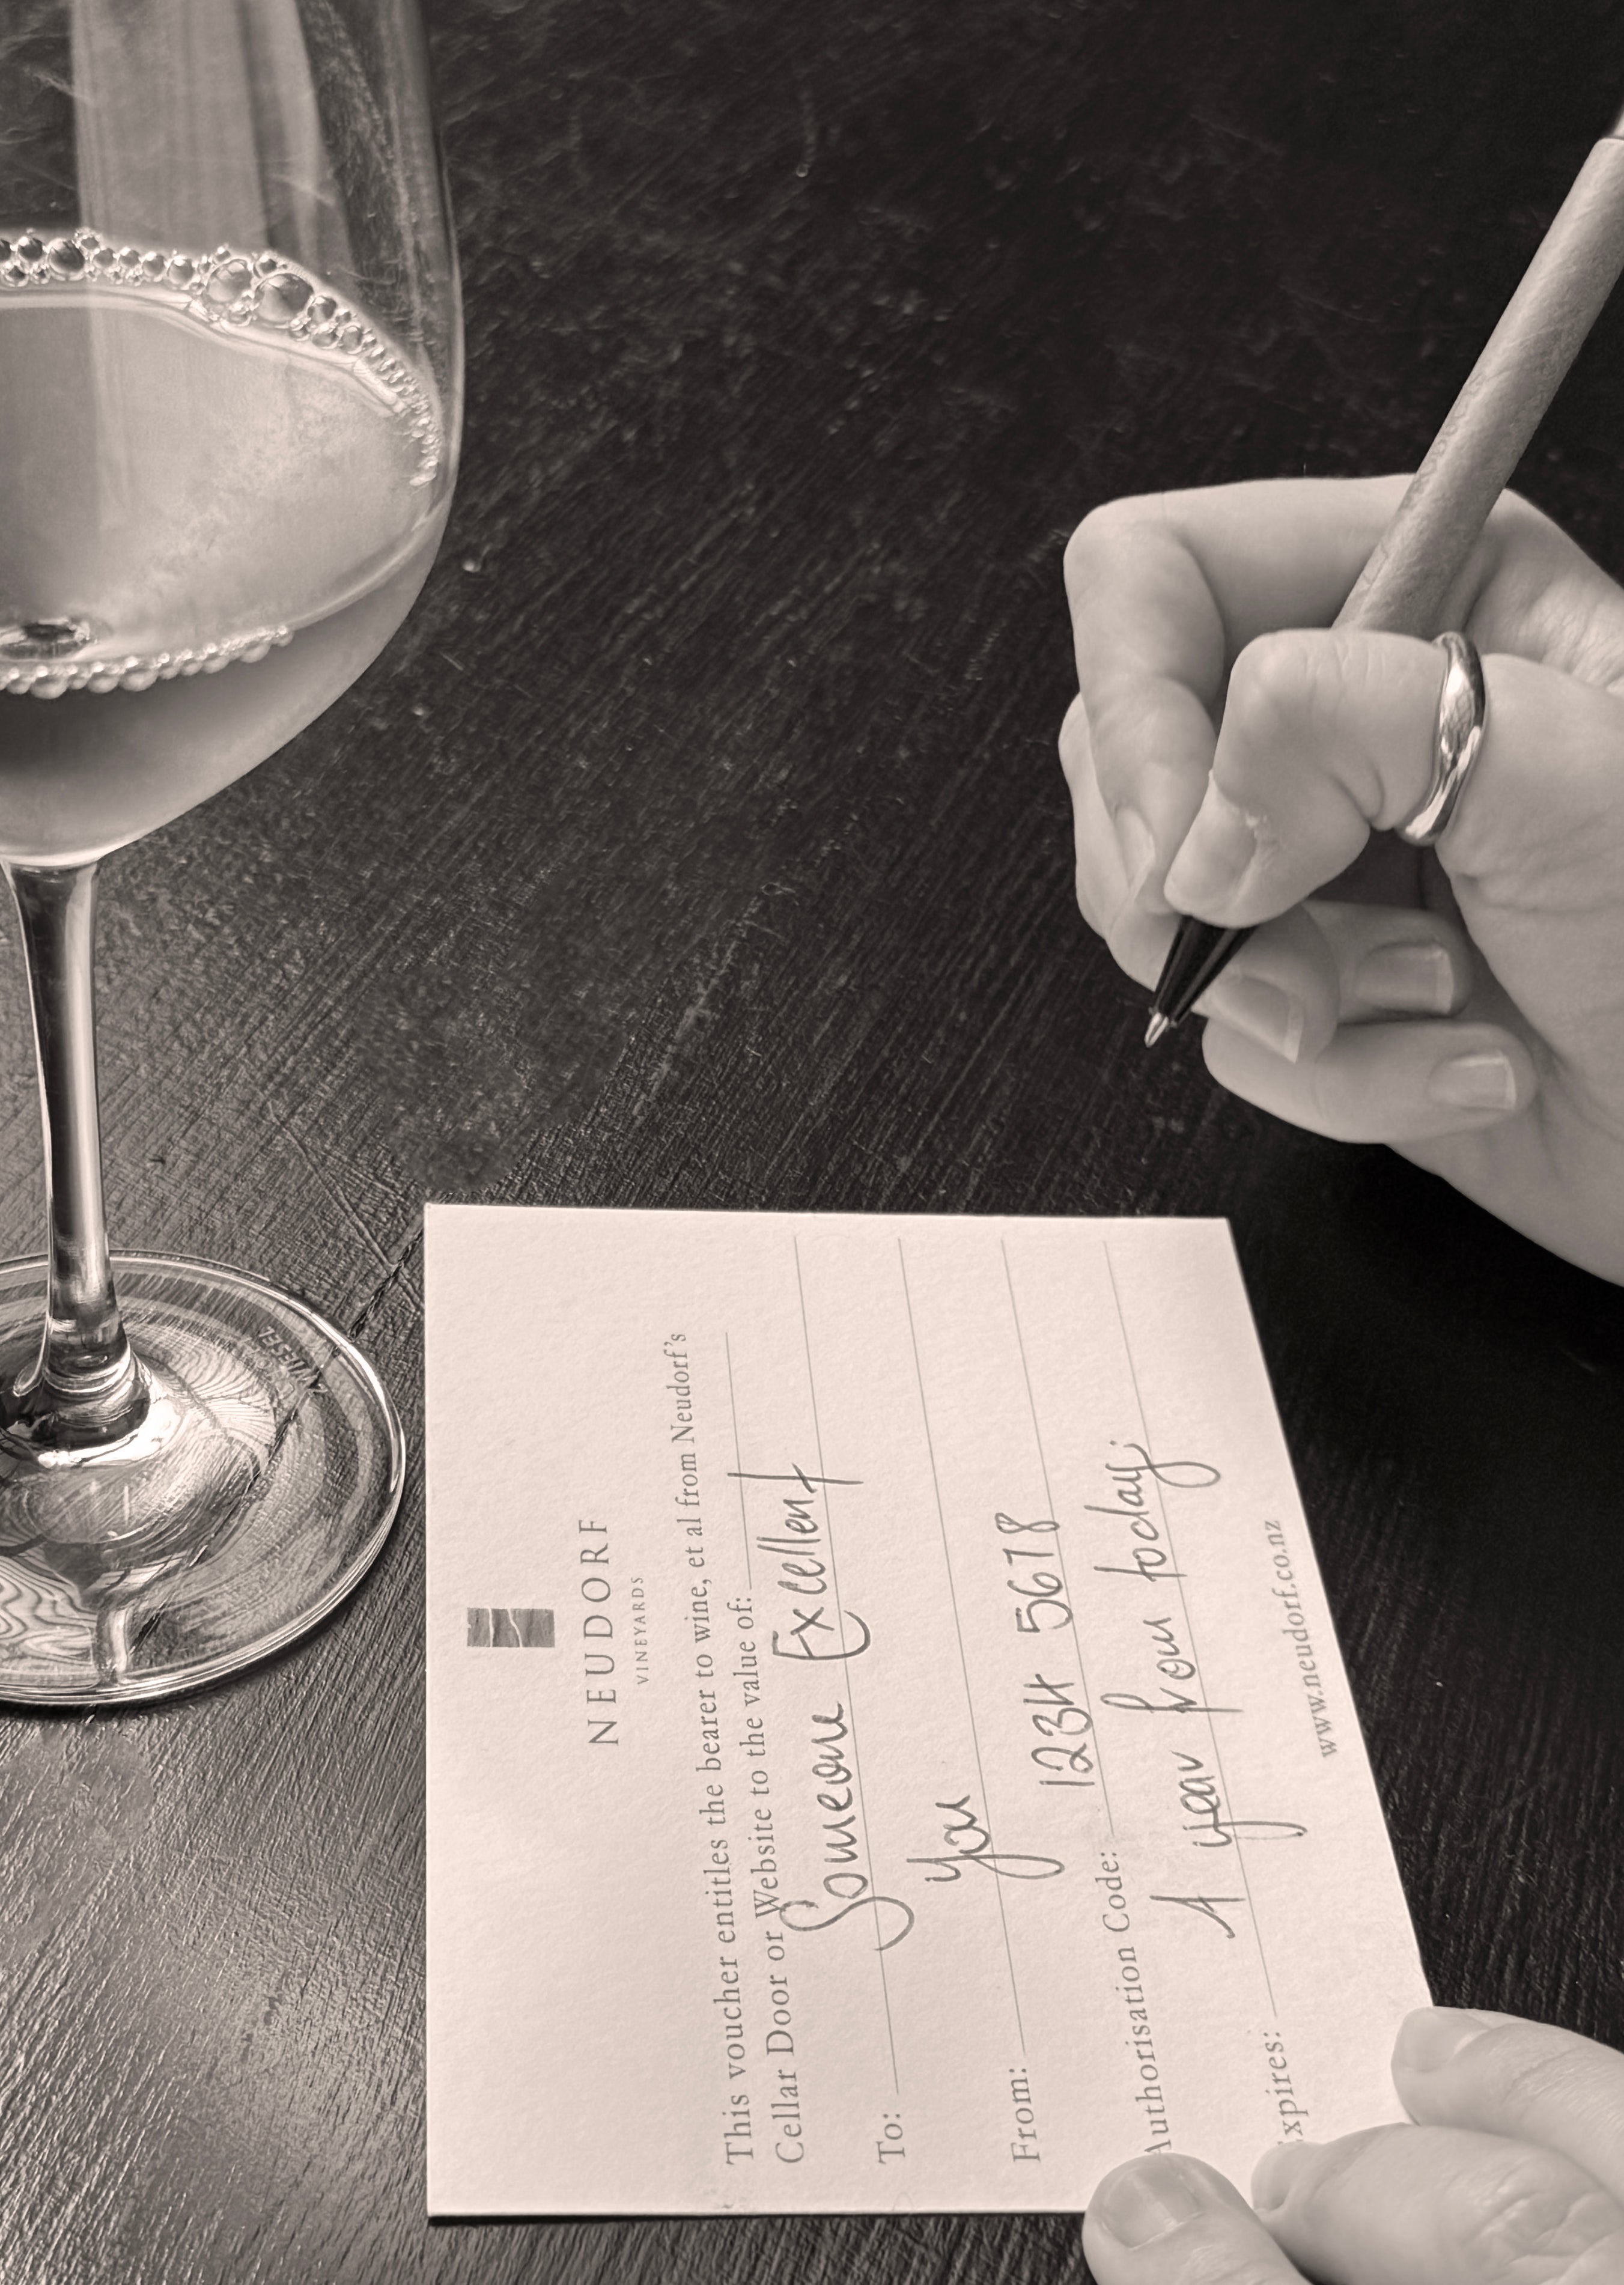 NEUDORF
VINEYARDS
This voucher entitles the bearer to wine, et al from Neudorf's
Cellar Door or Website to the value of:
To: Someone Excellent
From: you
Authorisation Code: 1234 5678
Expires: 1 year from today:
www.neudorf.co.nz